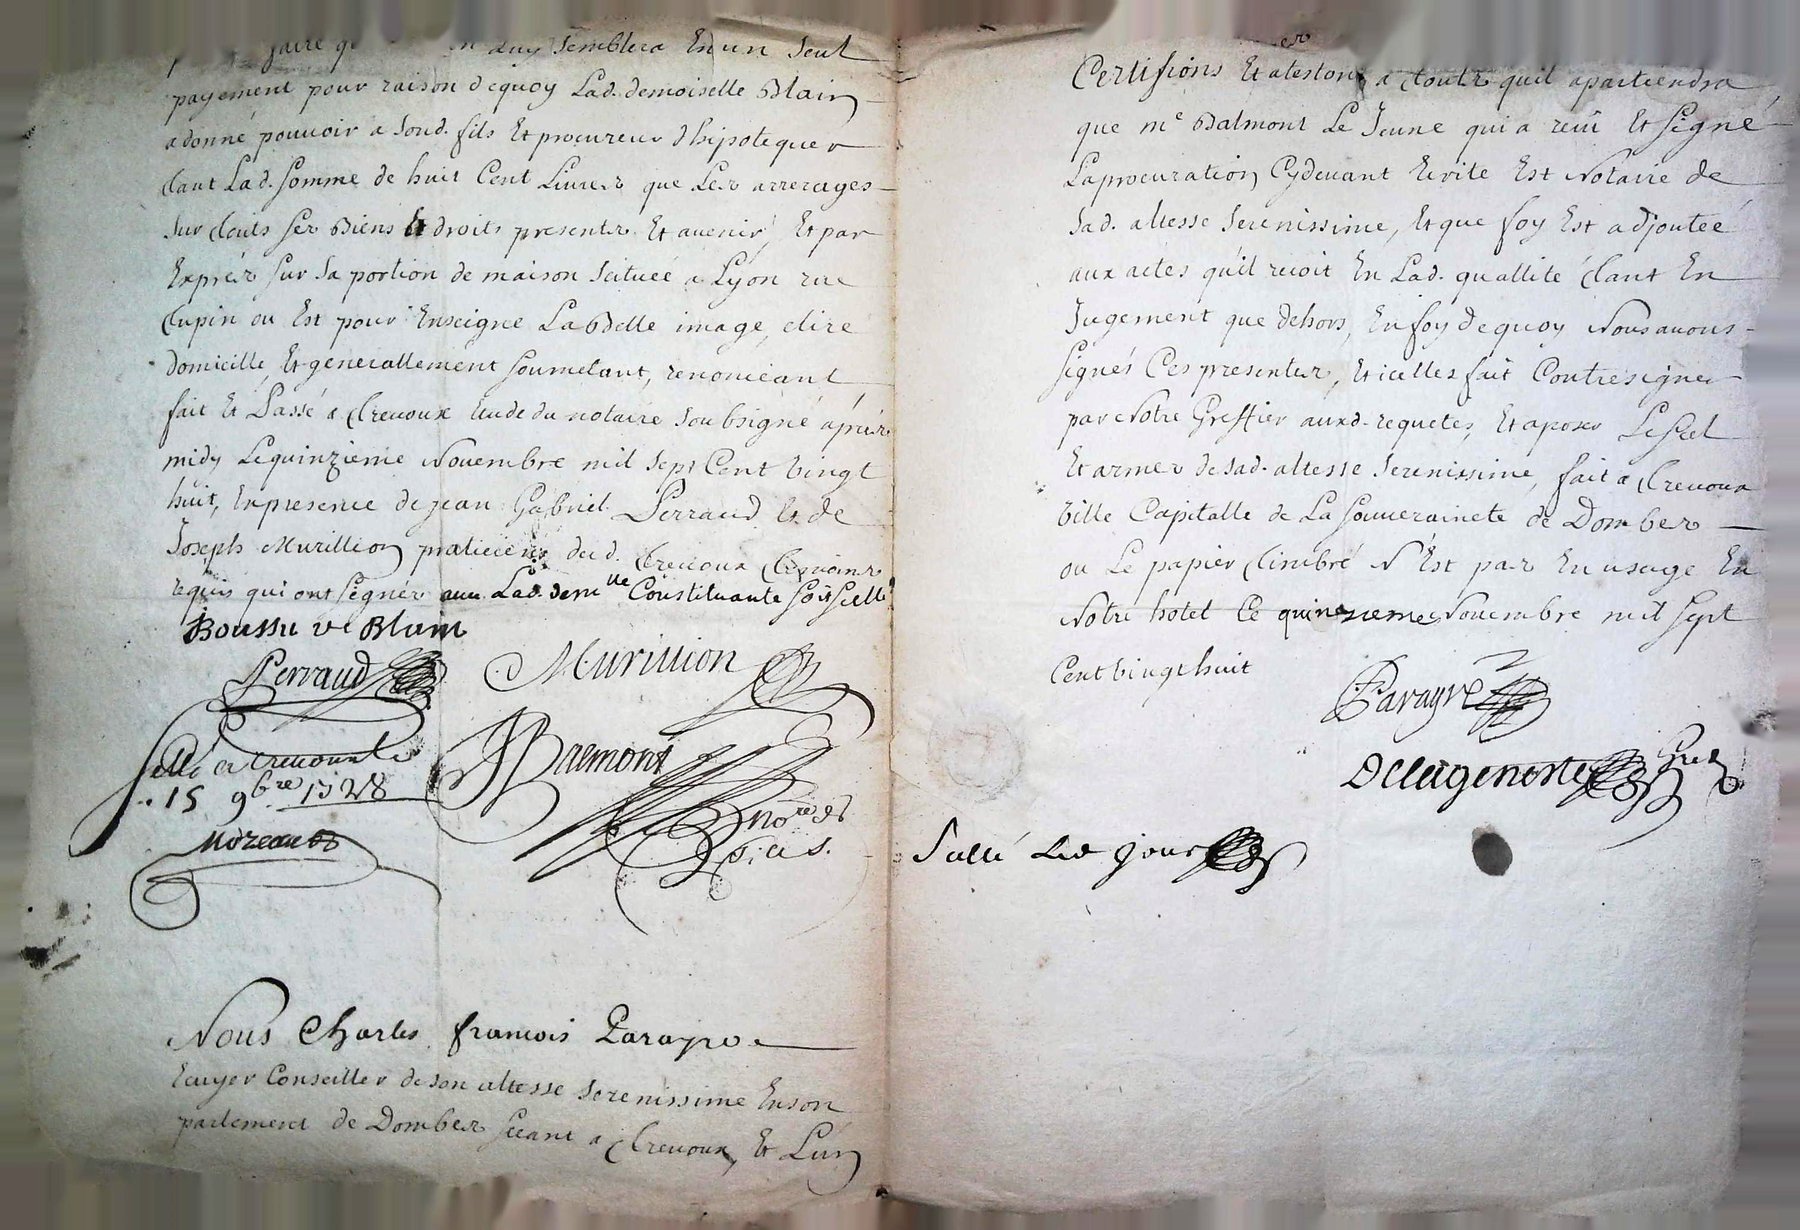 faire luy semblera En un seul
payement pour raison dequoy Lad. demoiselle Blain
a donné pouvoir a sond. fils Et procureur d'hipotequer
tant Lad. somme de huit Cent Livres que Les arrerages
sur touts ses Biens Et droits presents Et avenir, Et par
Exprés sur sa portion de maison scituée a Lyon rue
tupin ou Est pour Enseigne La Belle image, elire
domicille, Et generallement soumetant, renonceant
fait Et Passé a trevoux Etude du notaire soubsigné aprés
midy Le quinzieme Novembre mil sept Cent vingt
huit, En presence de jean Gabriel Perraud Et de
Joseph Murillion praticiens dud. trevoux temoins
requis qui ont signés avec Lad. demlle Constituante
Boussu ve Blain
Perraud Murillion
scellé a trevoux le
15 9bre 1728 Balmont
Moreau nore
Nous Charles françois Parayre
Ecuyer Conseiller de son altesse serenissime En son
parlement de Dombes sceant a trevoux, Et L'un
Certifions Et atestons a touts quil apartiendra
que me Balmont Le Jeune qui a reçu Et signé
La procuration Cydevant Ecrite Est Notaire de
sad. altesse serenissime, Et que foy Est adjoutée
aux actes qu'il recoit En Lad. quallité tant En
Jugement que dehors, En foy dequoy Nous avons
signés Ces presentes, Et icelles fait Contresigner
par Notre Greffier auxd. requetes, Et aposer Le scel
Et armes de sad. altesse serenissime, fait a trevoux
ville Capitalle de La souveraineté de Dombes
ou Le papier timbré N'Est pas En usage En
Notre hotel Ce quinzieme Novembre mil sept
Cent vingt huit
Parayre
Delageneste Gref
Scellé Led jour